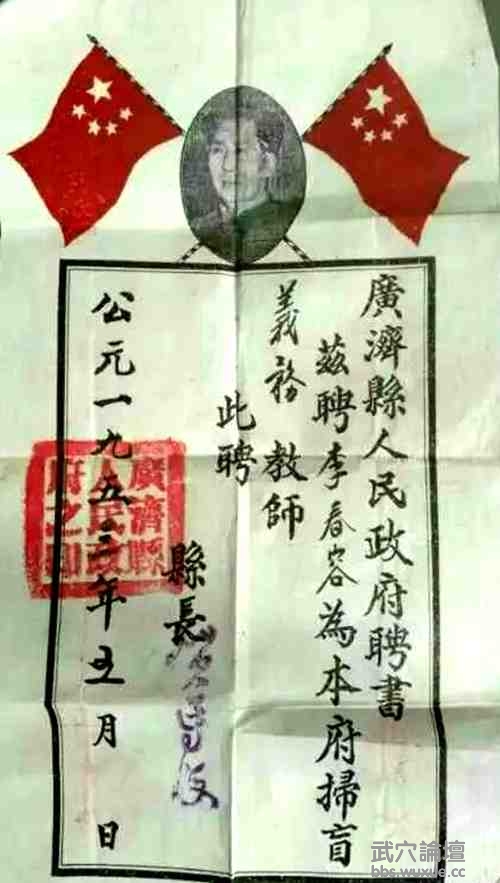 廣濟縣人民政府聘書
茲聘李春容為本府掃盲
義務教師
此聘
縣長
公元一九五三年五月 日
廣濟縣人民政府之印
武穴論壇
bbs.wuxue.cc